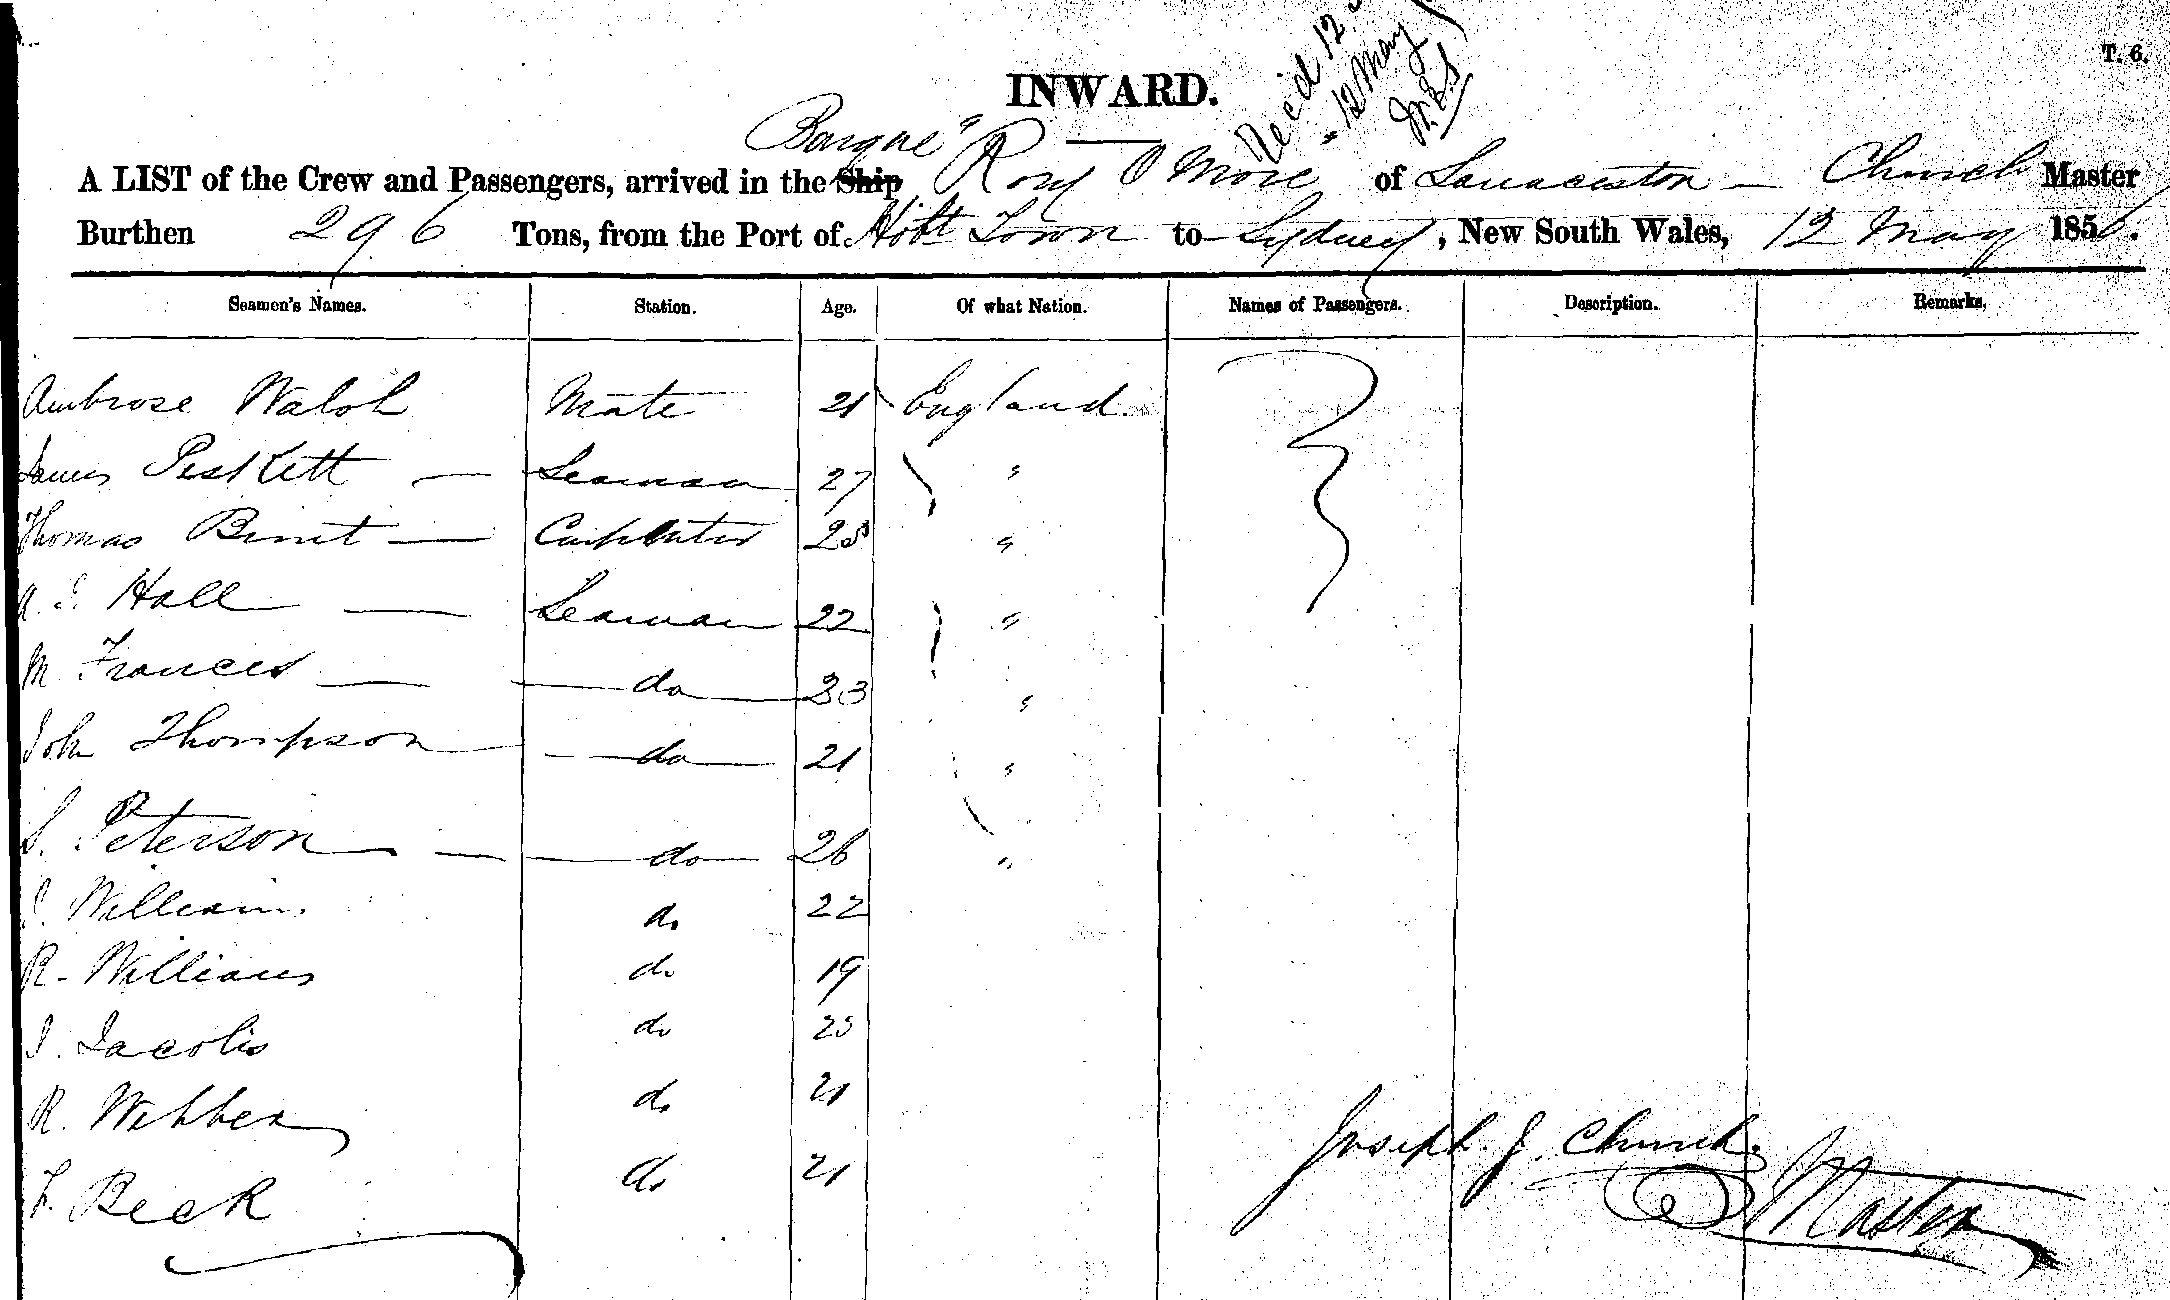 T. 6.
INWARD.
Rec'd 12
" 12 May
Barque"
A LIST of the Crew and Passengers, arrived in the Ship Rory O More of Launceston — Church Master
Burthen 296 Tons, from the Port of Hobt Town to Sydney, New South Wales, 12 May 1856.
Seamen's Names. Station. Age. Of what Nation. Names of Passengers. Description. Remarks.
Ambrose Walsh Mate 21 England
James Peskett — Seaman 27 "
Thomas Binet — Carpenter 28 "
A. J. Hall — Seaman 22 "
M Frances — do 23 "
John Thompson — do 21 "
S. Peterson — do 26 "
J. Williams do 22
R. Williams do 19
J. Jacobs do 25
R. Webber do 21
F. Beck do 21
Joseph J. Church
Master